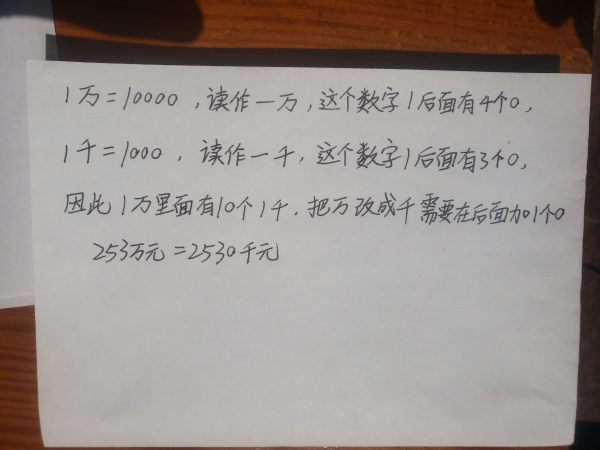 1万=10000，读作一万，这个数字1后面有4个0，
1千=1000，读作一千，这个数字1后面有3个0，
因此1万里面有10个1千，把万改成千需要在后面加1个0
253万元=2530千元